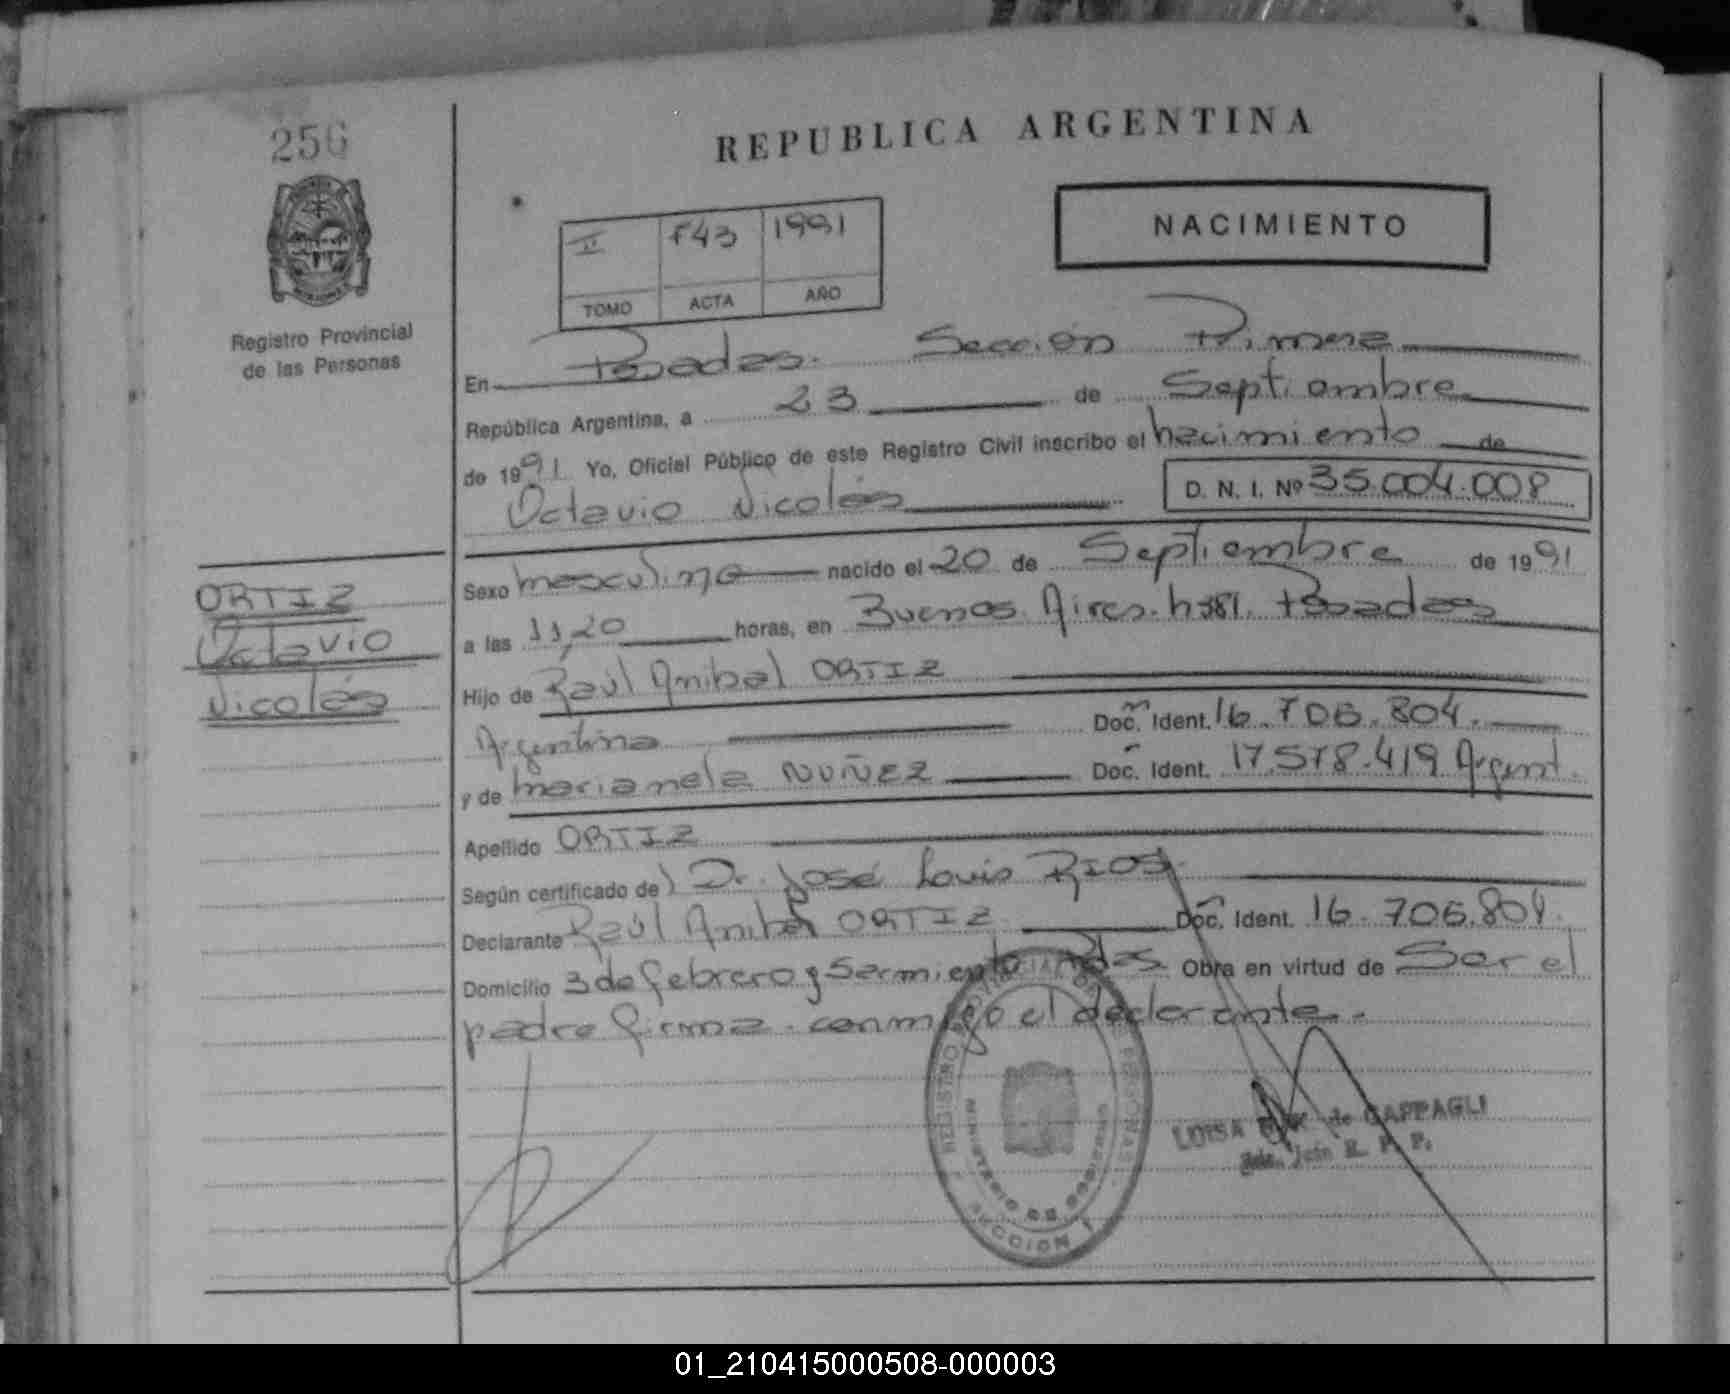 256
REPUBLICA ARGENTINA
NACIMIENTO
II 743 1991
TOMO ACTA AÑO
Registro Provincial
de las Personas
En Posadas. Sección Primera
República Argentina, a 23 de Septiembre
de 1991 Yo, Oficial Público de este Registro Civil inscribo el nacimiento de
Octavio Nicolás D. N. I. Nº 35.004.008
ORTIZ
Octavio
Nicolás
Sexo masculino nacido el 20 de Septiembre de 1991
a las 11,20 horas, en Buenos Aires. n381. Posadas
Hijo de Raúl Anibal ORTIZ
Argentina Doc. Ident. 16.706.804.
y de Marianela NUÑEZ Doc. Ident. 17.578.419 Argent.
Apellido ORTIZ
Según certificado de) Dr. José Louis RIOS
Declarante Raúl Anibal ORTIZ Doc. Ident. 16.706.804.
Domicilio 3 de febrero y Sarmiento Pdas. Obra en virtud de Ser el
padre firma conmigo el declarante.
REGISTRO PROVINCIAL DE PERSONAS
MINISTERIO DE GOBIERNO
SECCION 1
LUISA de CAPPAGLI
R. P. P.
01_210415000508-000003